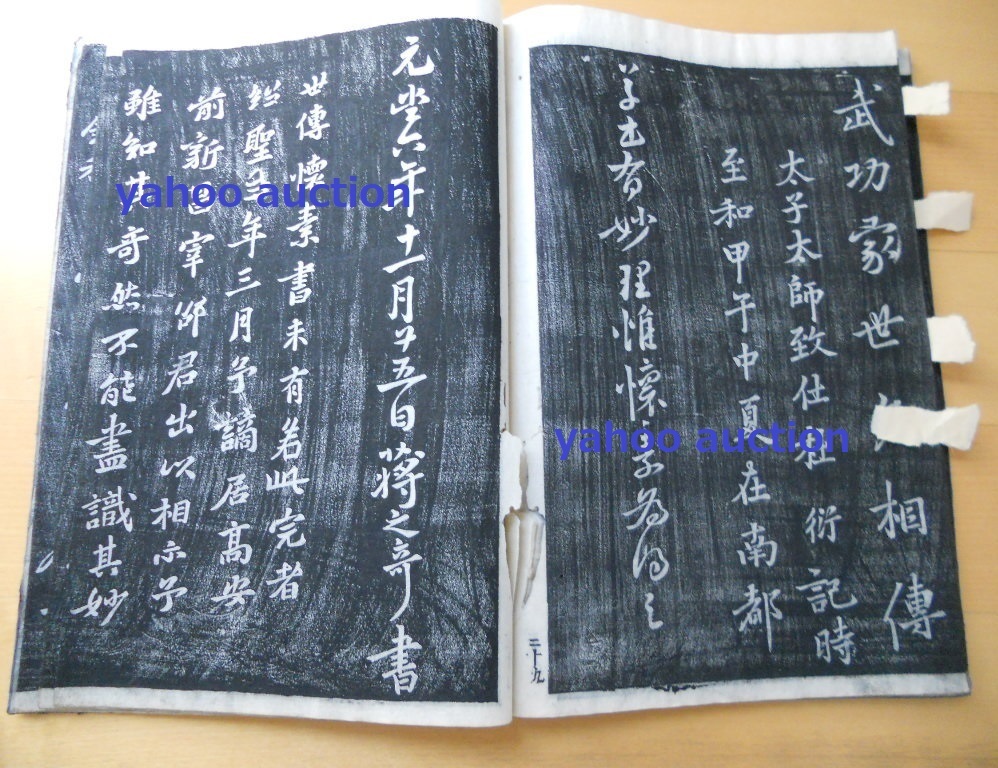 武功家世久相傳
太子太師致仕杜衍記時
至和甲午中夏在南都
草書有妙理惟懷素為得之
二十九
元豐六年十一月廿五日蔣之奇書
世傳懷素書未有若此完者
紹聖三年三月予謫居高安
前新昌宰邵君出以相示予
雖知其奇然不能盡識其妙
yahoo auction
yahoo auction